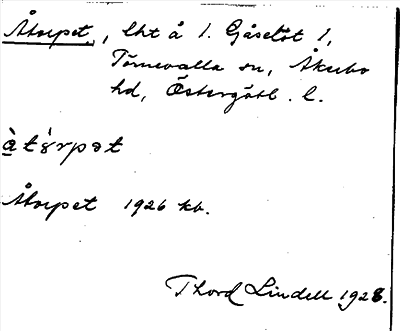 Åtorpet, lht å 1. Gåsetöt 1,
Törnevalla sn, Åkerbo
hd, Östergötl. l.
àtórpət
Åtorpet 1926 kb.
Thord Lindell 1928.